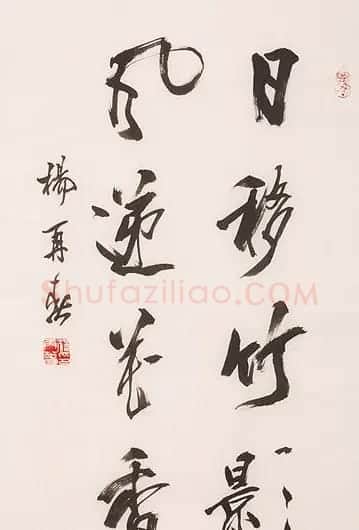 日移竹影
风递花香
楊再春
Shufaziliao.COM